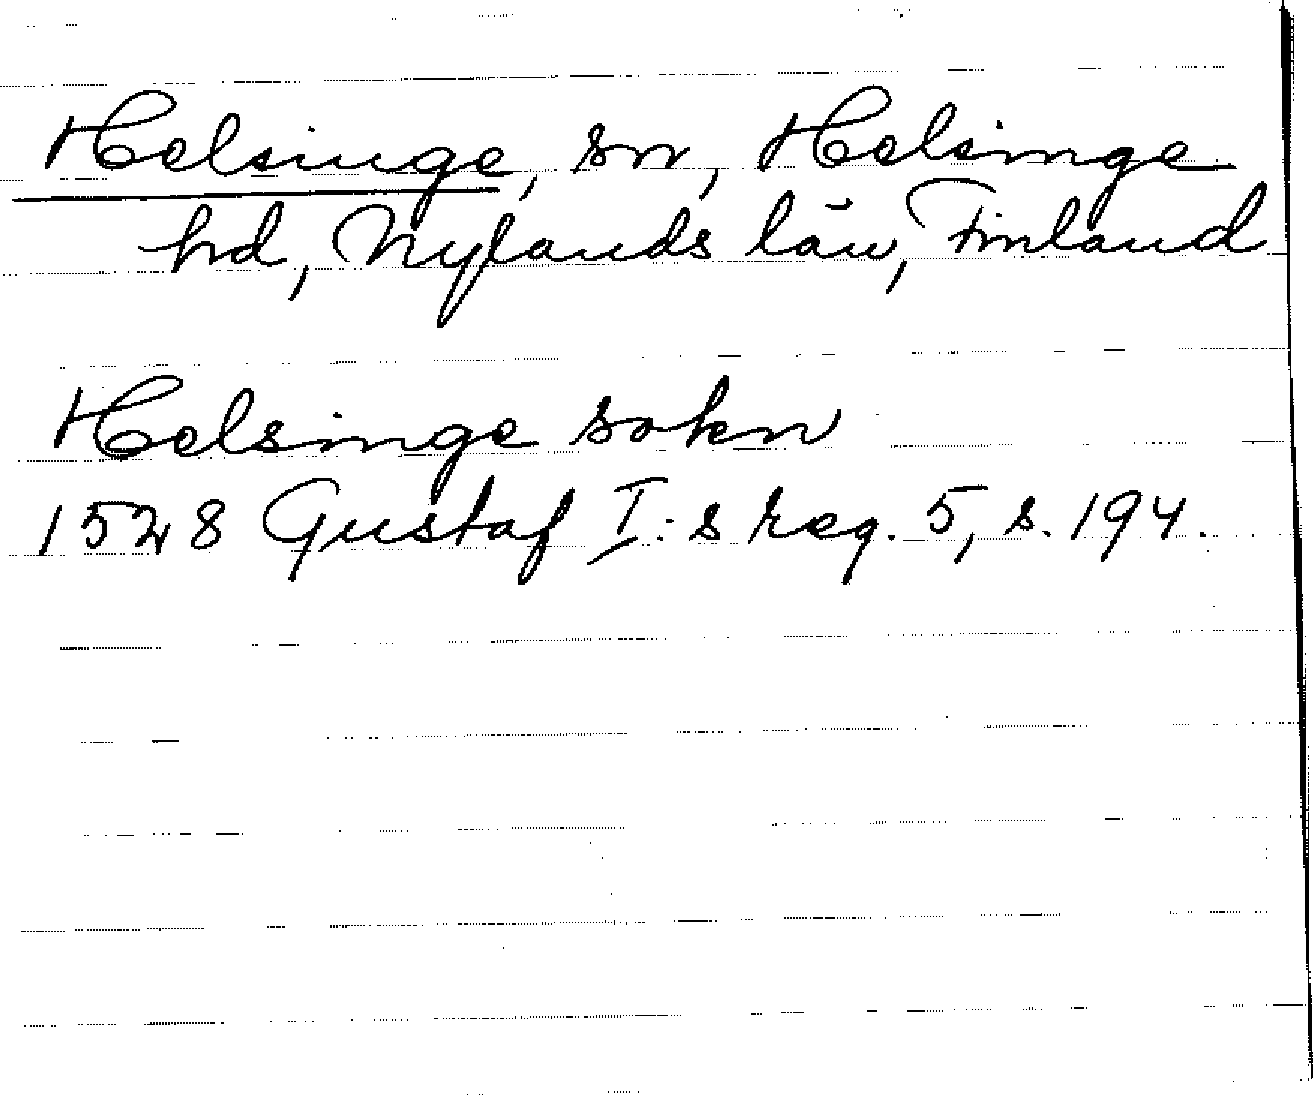 Helsinge, sn, Helsinge
hd, Nylands län, Finland
Helsinge sokn
1528 Gustaf I:s reg. 5, s. 194.